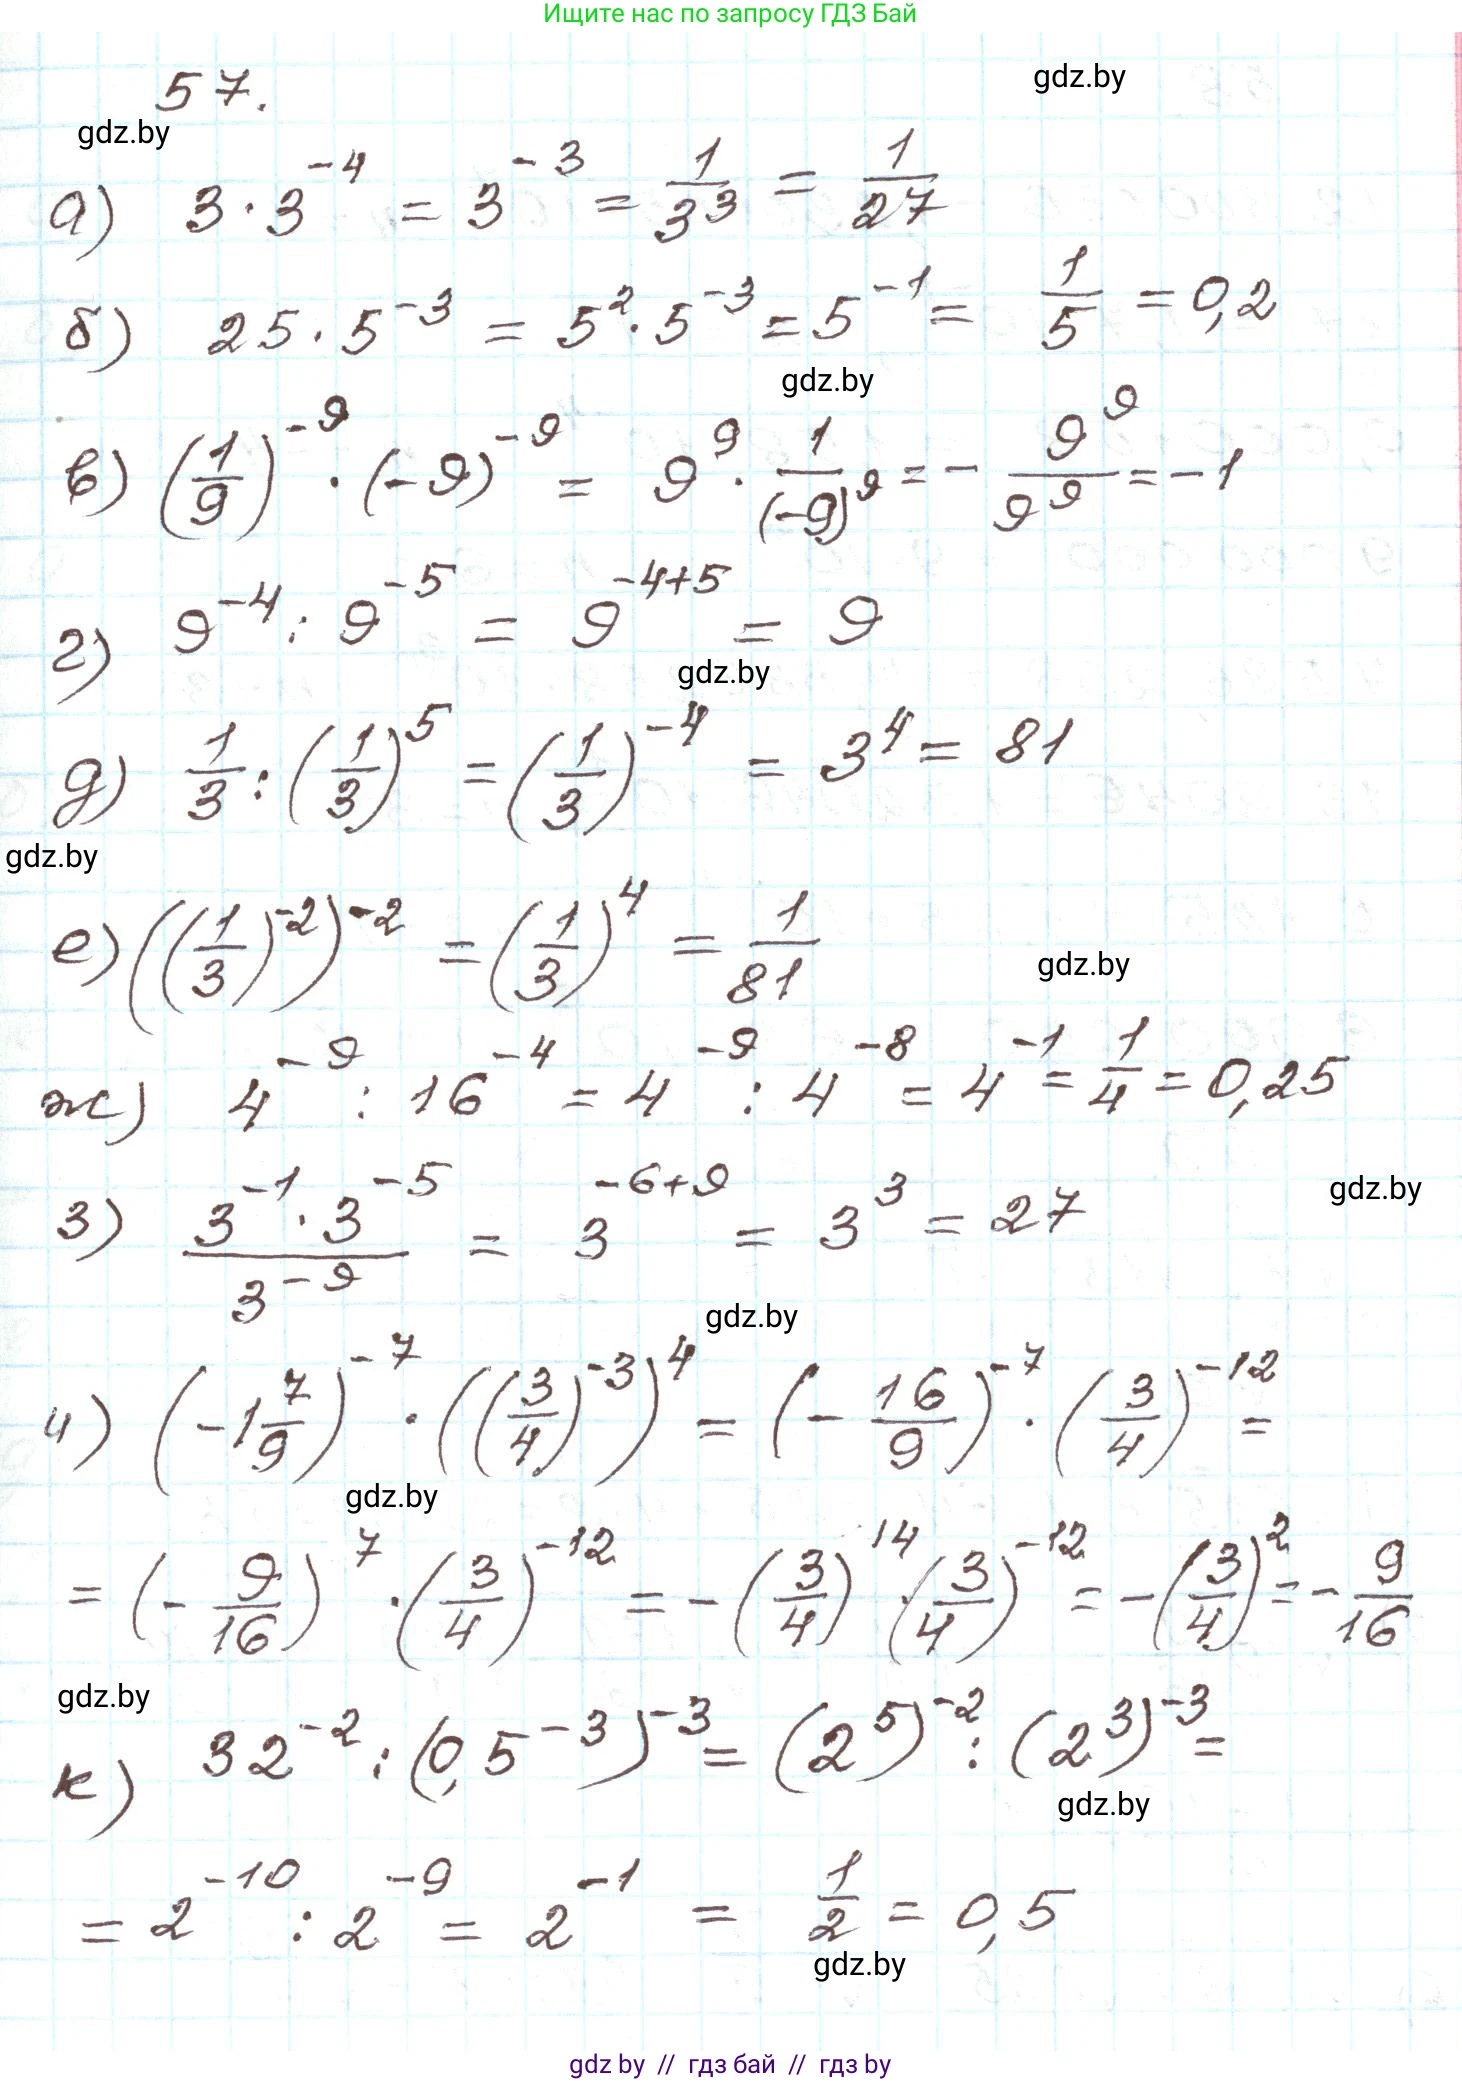 Ищите нас по запросу ГДЗ Бай
57.
gdz.by
gdz.by
а) 3 · 3^{-4} = 3^{-3} = \frac{1}{3^3} = \frac{1}{27}
б) 25 · 5^{-3} = 5^2 · 5^{-3} = 5^{-1} = \frac{1}{5} = 0,2
gdz.by
в) (\frac{1}{9})^{-9} · (-9)^{-9} = 9^9 · \frac{1}{(-9)^9} = -\frac{9^9}{9^9} = -1
г) 9^{-4} : 9^{-5} = 9^{-4+5} = 9
gdz.by
д) \frac{1}{3} : (\frac{1}{3})^5 = (\frac{1}{3})^{-4} = 3^4 = 81
gdz.by
е) ((\frac{1}{3})^{-2})^{-2} = (\frac{1}{3})^4 = \frac{1}{81}
gdz.by
ж) 4^{-9} : 16^{-4} = 4^{-9} : 4^{-8} = 4^{-1} = \frac{1}{4} = 0,25
з) \frac{3^{-1} · 3^{-5}}{3^{-9}} = 3^{-6+9} = 3^3 = 27
gdz.by
gdz.by
и) (-1\frac{7}{9})^{-7} · ((\frac{3}{4})^{-3})^4 = (-\frac{16}{9})^{-7} · (\frac{3}{4})^{-12} =
gdz.by
= (-\frac{9}{16})^7 · (\frac{3}{4})^{-12} = -(\frac{3}{4})^{14} · (\frac{3}{4})^{-12} = -(\frac{3}{4})^2 = -\frac{9}{16}
gdz.by
к) 32^{-2} : (0,5^{-3})^{-3} = (2^5)^{-2} : (2^3)^{-3} =
gdz.by
= 2^{-10} : 2^{-9} = 2^{-1} = \frac{1}{2} = 0,5
gdz.by
gdz by // гдз бай // гдз by